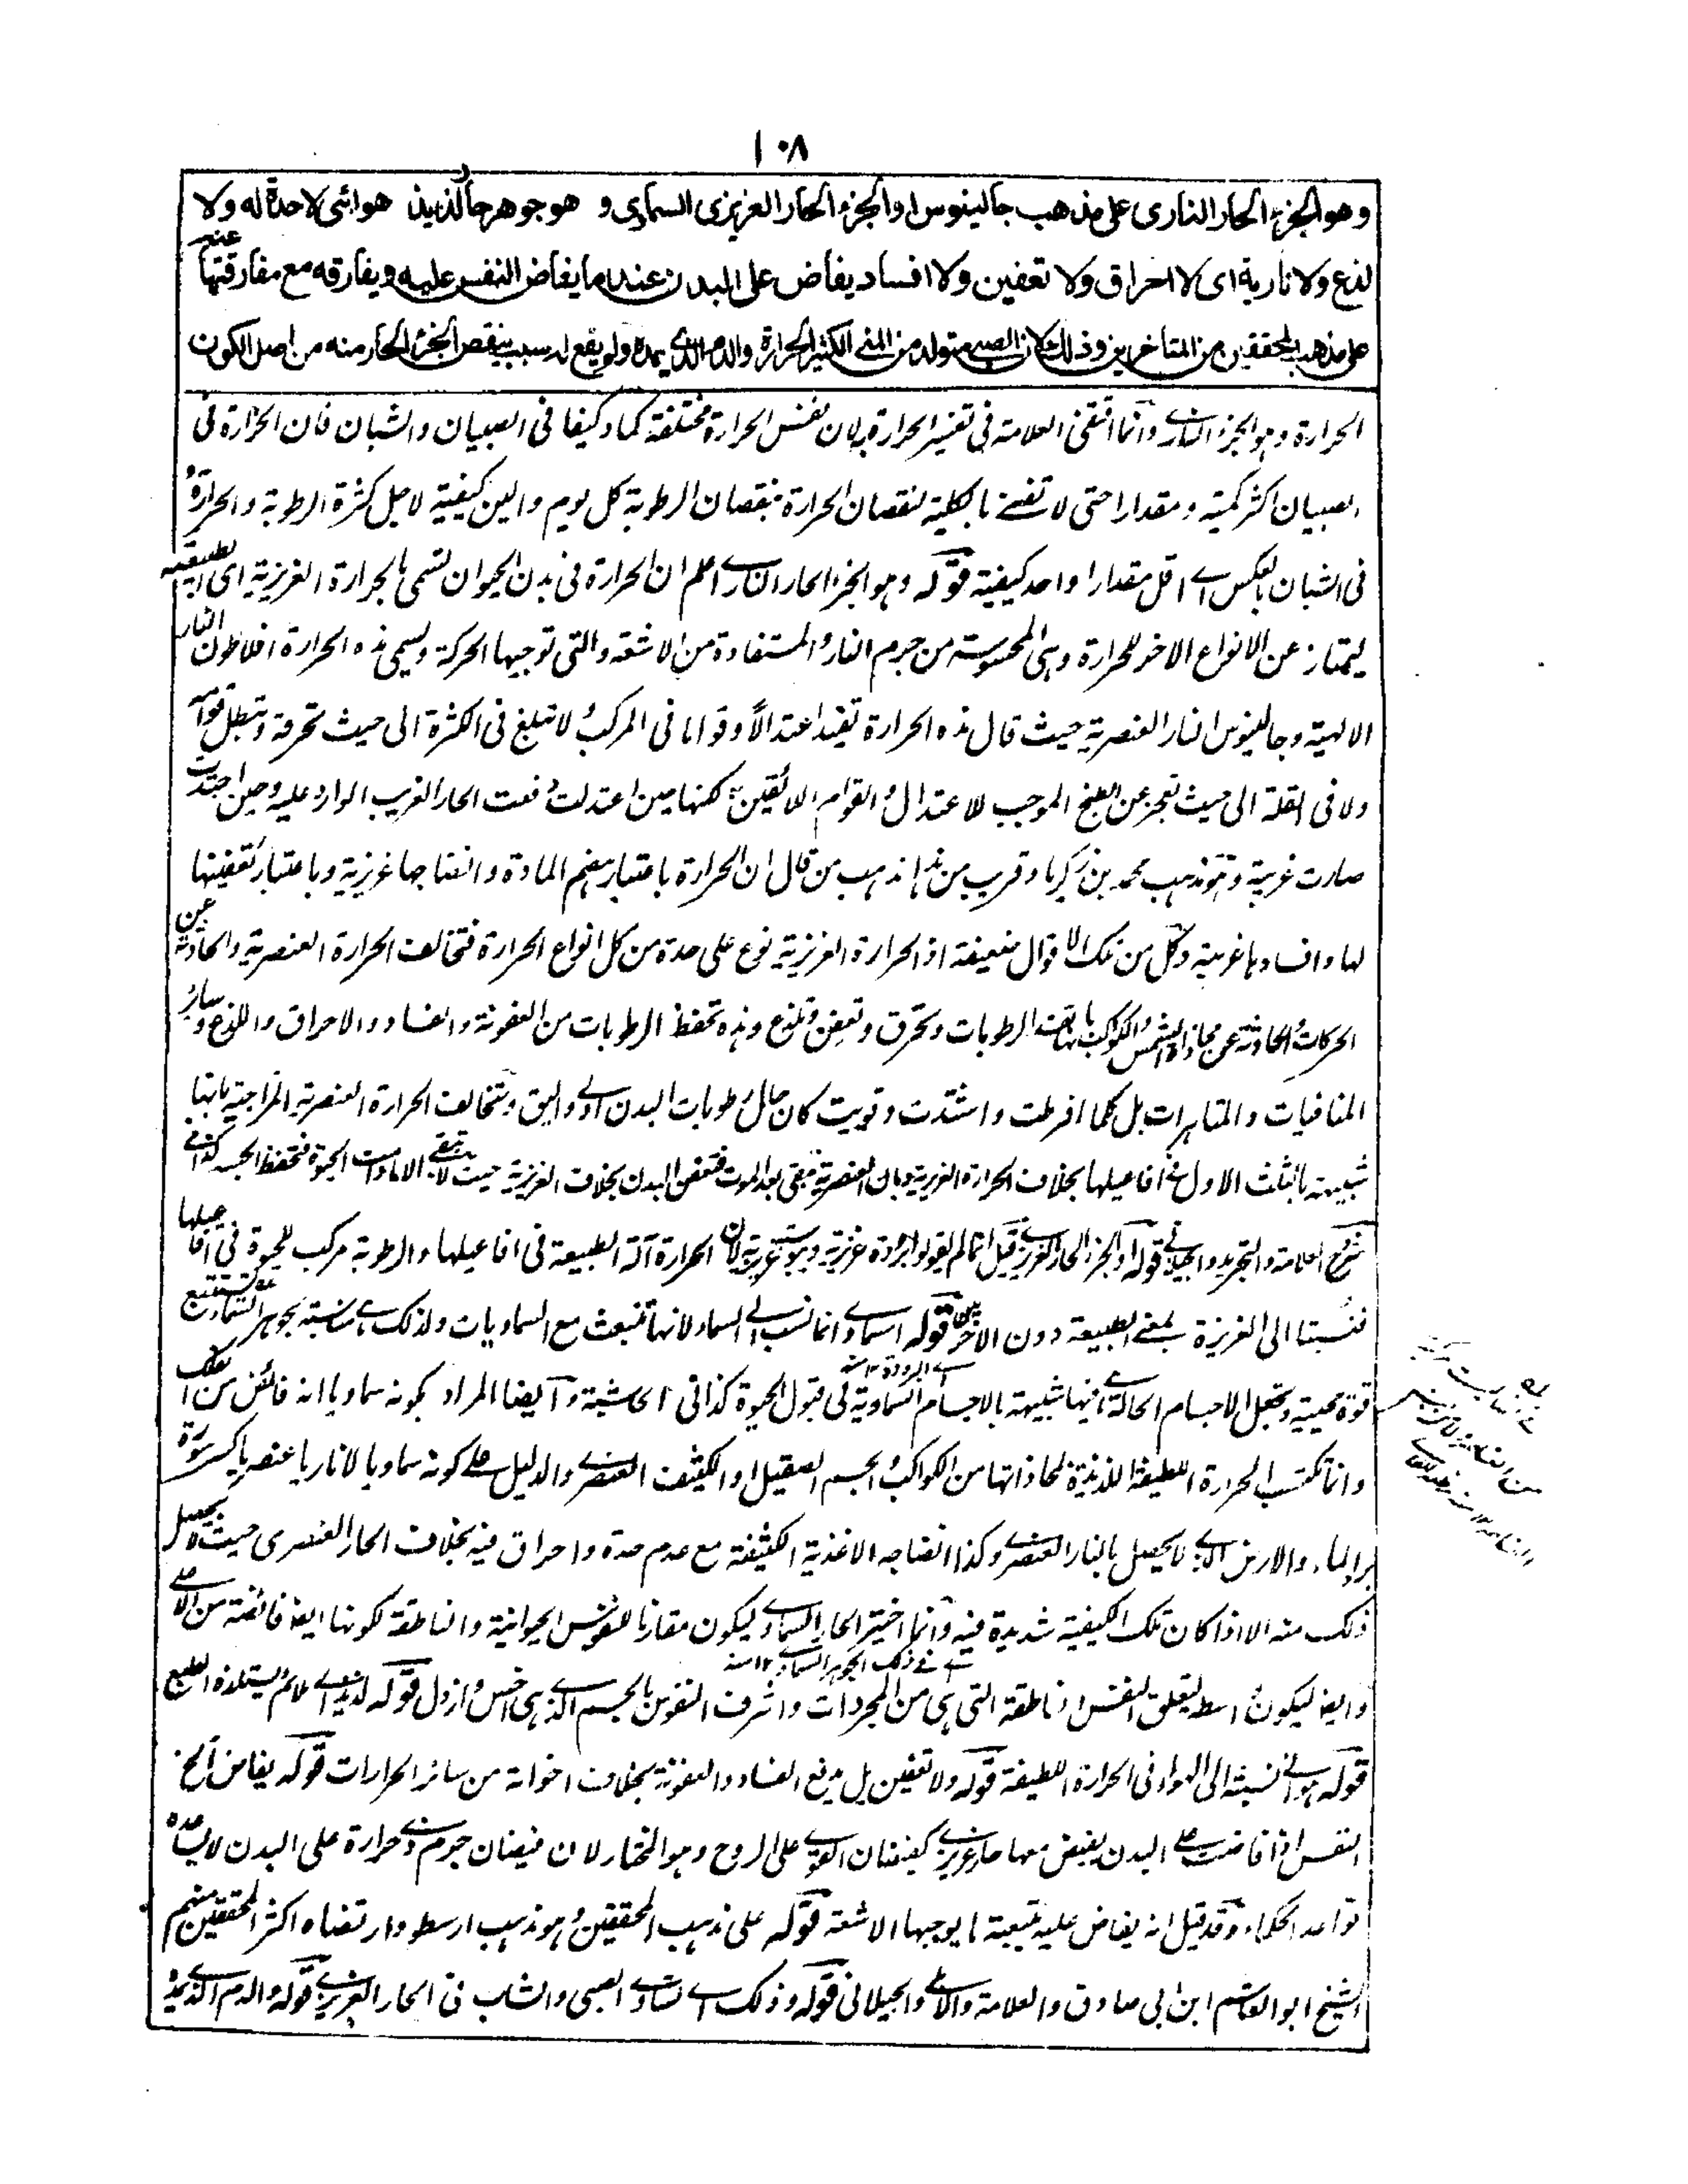 ١٠٨
وهو الجزء الحار الناری علی مذهب جالینوس او الجزء الحار الغریزی السماوی و هو جوهر حار لذیذ هوائی لا حدة له ولا
لذع ولا ناریة ای لا احراق ولا تعفین ولا افساد یفاض علی البدن عند ما یفاض النفس علیه و یفارقه مع مفارقتها عنه
علی مذهب المحققین من المتأخرین وذلك لان الصبی متولد من المنی الکثیر الحرارة والدم الذی یمده ولم یقع له سبب ینقص الجزء الحار منه من اصل الکون
الحرارة وهو الجزء الناری وانما اقتفی العلامة فی تفسیر الحرارة به لان نفس الحرارة مختلفة کما وکیفا فی الصبیان والشبان فان الحرارة فی
الصبیان اکثر کمیة ومقدارا حتی لا تفنی بالکلیة لنقصان الحرارة بنقصان الرطوبة کل یوم والین کیفیة لاجل کثرة الرطوبة والحرارة
فی الشبان بالعکس ای اقل مقدارا واحد کیفیة قوله وهو الجزء الحار الناری اعلم ان الحرارة فی بدن الحیوان تسمی بالحرارة الغریزیة ای الطبیعیة
لیمتاز عن الانواع الاخر للحرارة وهی المحسوسة من جرم النار والمستفادة من الاشعة والتی توجبها الحرکة ویسمی هذه الحرارة افلاطون النار
الالهیة وجالینوس النار العنصریة حیث قال هذه الحرارة تفید اعتدالا وقواما فی المرکب لا تبلغ فی الکثرة الی حیث تحرقه وتبطل قوامه
ولا فی القلة الی حیث تعجز عن الطبخ الموجب للاعتدال والقوام اللائقین لکنها حین اعتدلت دفعت الحار الغریب الوارد علیه وحین احتدت
صارت غریبة وهو مذهب محمد بن زکریا وقریب من هذا مذهب من قال ان الحرارة باعتبار هضم المادة وانضاجها غریزیة وباعتبار تعفینها
لها وافسادها غریبة وکل من تلک الاقوال ضعیفة اذ الحرارة الغریزیة نوع علی حدة من کل انواع الحرارة فتخالف الحرارة العنصریة والحادثة عن
الحرکات والحادثة عن محاذاة الشمس والکواکب بانها الرطوبات وتحرق وتعفن وتلذع وهذه تحفظ الرطوبات من العفونة والفساد والاحراق واللذع وسائر
المنافیات بل کلما افرطت واشتدت وقویت کان حال رطوبات البدن اولی والیق وتخالف الحرارة العنصریة المزاجیة بانها
شبیهة بالثلث الاول فی افاعیلها بخلاف الحرارة الغریزیة وبان العنصریة تبقی بعد الموت فتعفن البدن بخلاف الغریزیة حیث لا تبقی الا مادامت الحیوة فتحفظ الجسد کذا فی
شرح العلامة والتجرید والجیلانی قوله او الجزء الحار الغریزی قیل انما لم یقولوا برودة غریزیة ویبوسة غریزیة لان الحرارة آلة الطبیعة فی افاعیلها والرطوبة مرکب للحیوة فی افاعیلها
فنسبتا الی الغریزة بمعنی الطبیعة دون الاخریین قوله السماوی انما نسب الی السماء لانها تنبعث مع السماویات ولذلک مناسبة بجوهر السماویات
قوة محییة وتجعل الاجسام الحالة فیها شبیهة بالاجسام السماویة فی قبول الحیوة کذا فی الحاشیة وایضا المراد بکونه سماویا انه فائض من الفلک
وانما تکتسب الحرارة اللطیفة اللذیذة لمحاذاتها من الکواکب الجسم الصقیل او الکثیف العنصری والدلیل علی کونه سماویا لا ناریا عنصریا کسر سورة
برد الماء والارض لا یحصل بالنار العنصری وکذا انضاجه الاغذیة الکثیفة مع عدم حدة واحراق فیه بخلاف الحار العنصری حیث لا یحصل
ذلک منه الا اذا کان تلک الکیفیة شدیدة فیه وانما اختیر الحار السماوی لیکون مقارنا للنفوس الحیوانیة والناطقة لکونها ایضا فائضة من الاعلی
وایضا لیکون واسطة لتعلق النفس الناطقة التی هی من المجردات واشرف النفوس بالجسم الذی هی اخس وارذل قوله لذیذ ای ملائم یستلذه الطبع
قوله هوائی نسبته الی الهواء فی الحرارة اللطیفة قوله ولا تعفین بل یدفع الفساد والعفونة بخلاف اخواته من سائر الحرارات قوله یفاض الخ
النفس اذا فاضت علی البدن یفیض معها حار غریزی کفیضان القوی علی الروح وهو المختار لان فیضان جرم ذی حرارة علی البدن لا یساعده
قواعد الحکماء وقد قیل انه یفاض علیه بتبعیة ما یوجبها الاشعة قوله علی مذهب المحققین وهو مذهب ارسطو وارتضاه اکثر المحققین منهم
الشیخ ابو القاسم ابن ابی صادق والعلامة والآملی والجیلانی قوله وذلک ای تساوی الصبی والشاب فی الحار الغریزی قوله والدم الذی یمده